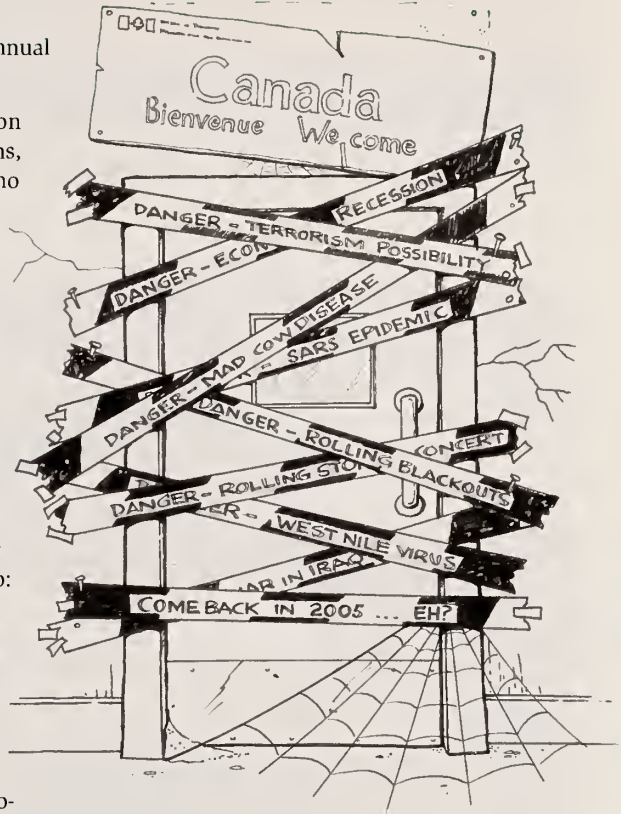 nnual
on
ns,
no
o:
o-
Canada
Bienvenue Welcome
RECESSION
DANGER - TERRORISM POSSIBILITY
DANGER - ECON
DANGER - MAD COW DISEASE
- SARS EPIDEMIC
DANGER - ROLLING BLACKOUTS
DANGER - ROLLING STO CONCERT
ER - WEST NILE VIRUS
AR IN IRAQ
COME BACK IN 2005 ... EH?